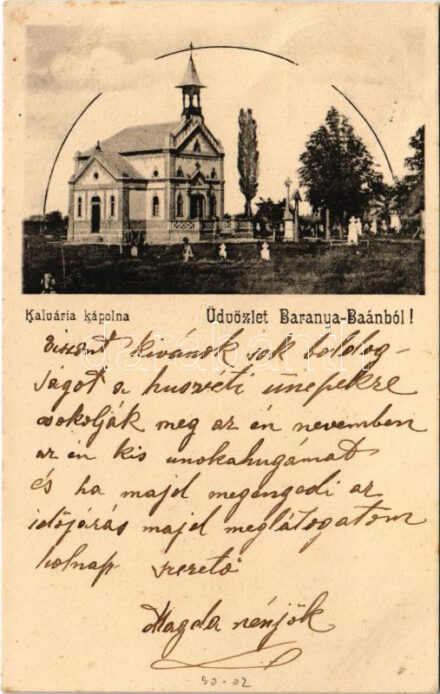 Kalvária kápolna
Üdvözlet Baranya-Baánból!
Viszont kivánok sok boldog-
ságot a husveti ünepekre
csokolják meg az én nevemben
az én kis unokahugámat
és ha majd megengedi az
időjárás majd meglátogatom
holnap szerető
Magda nénjök
50-02